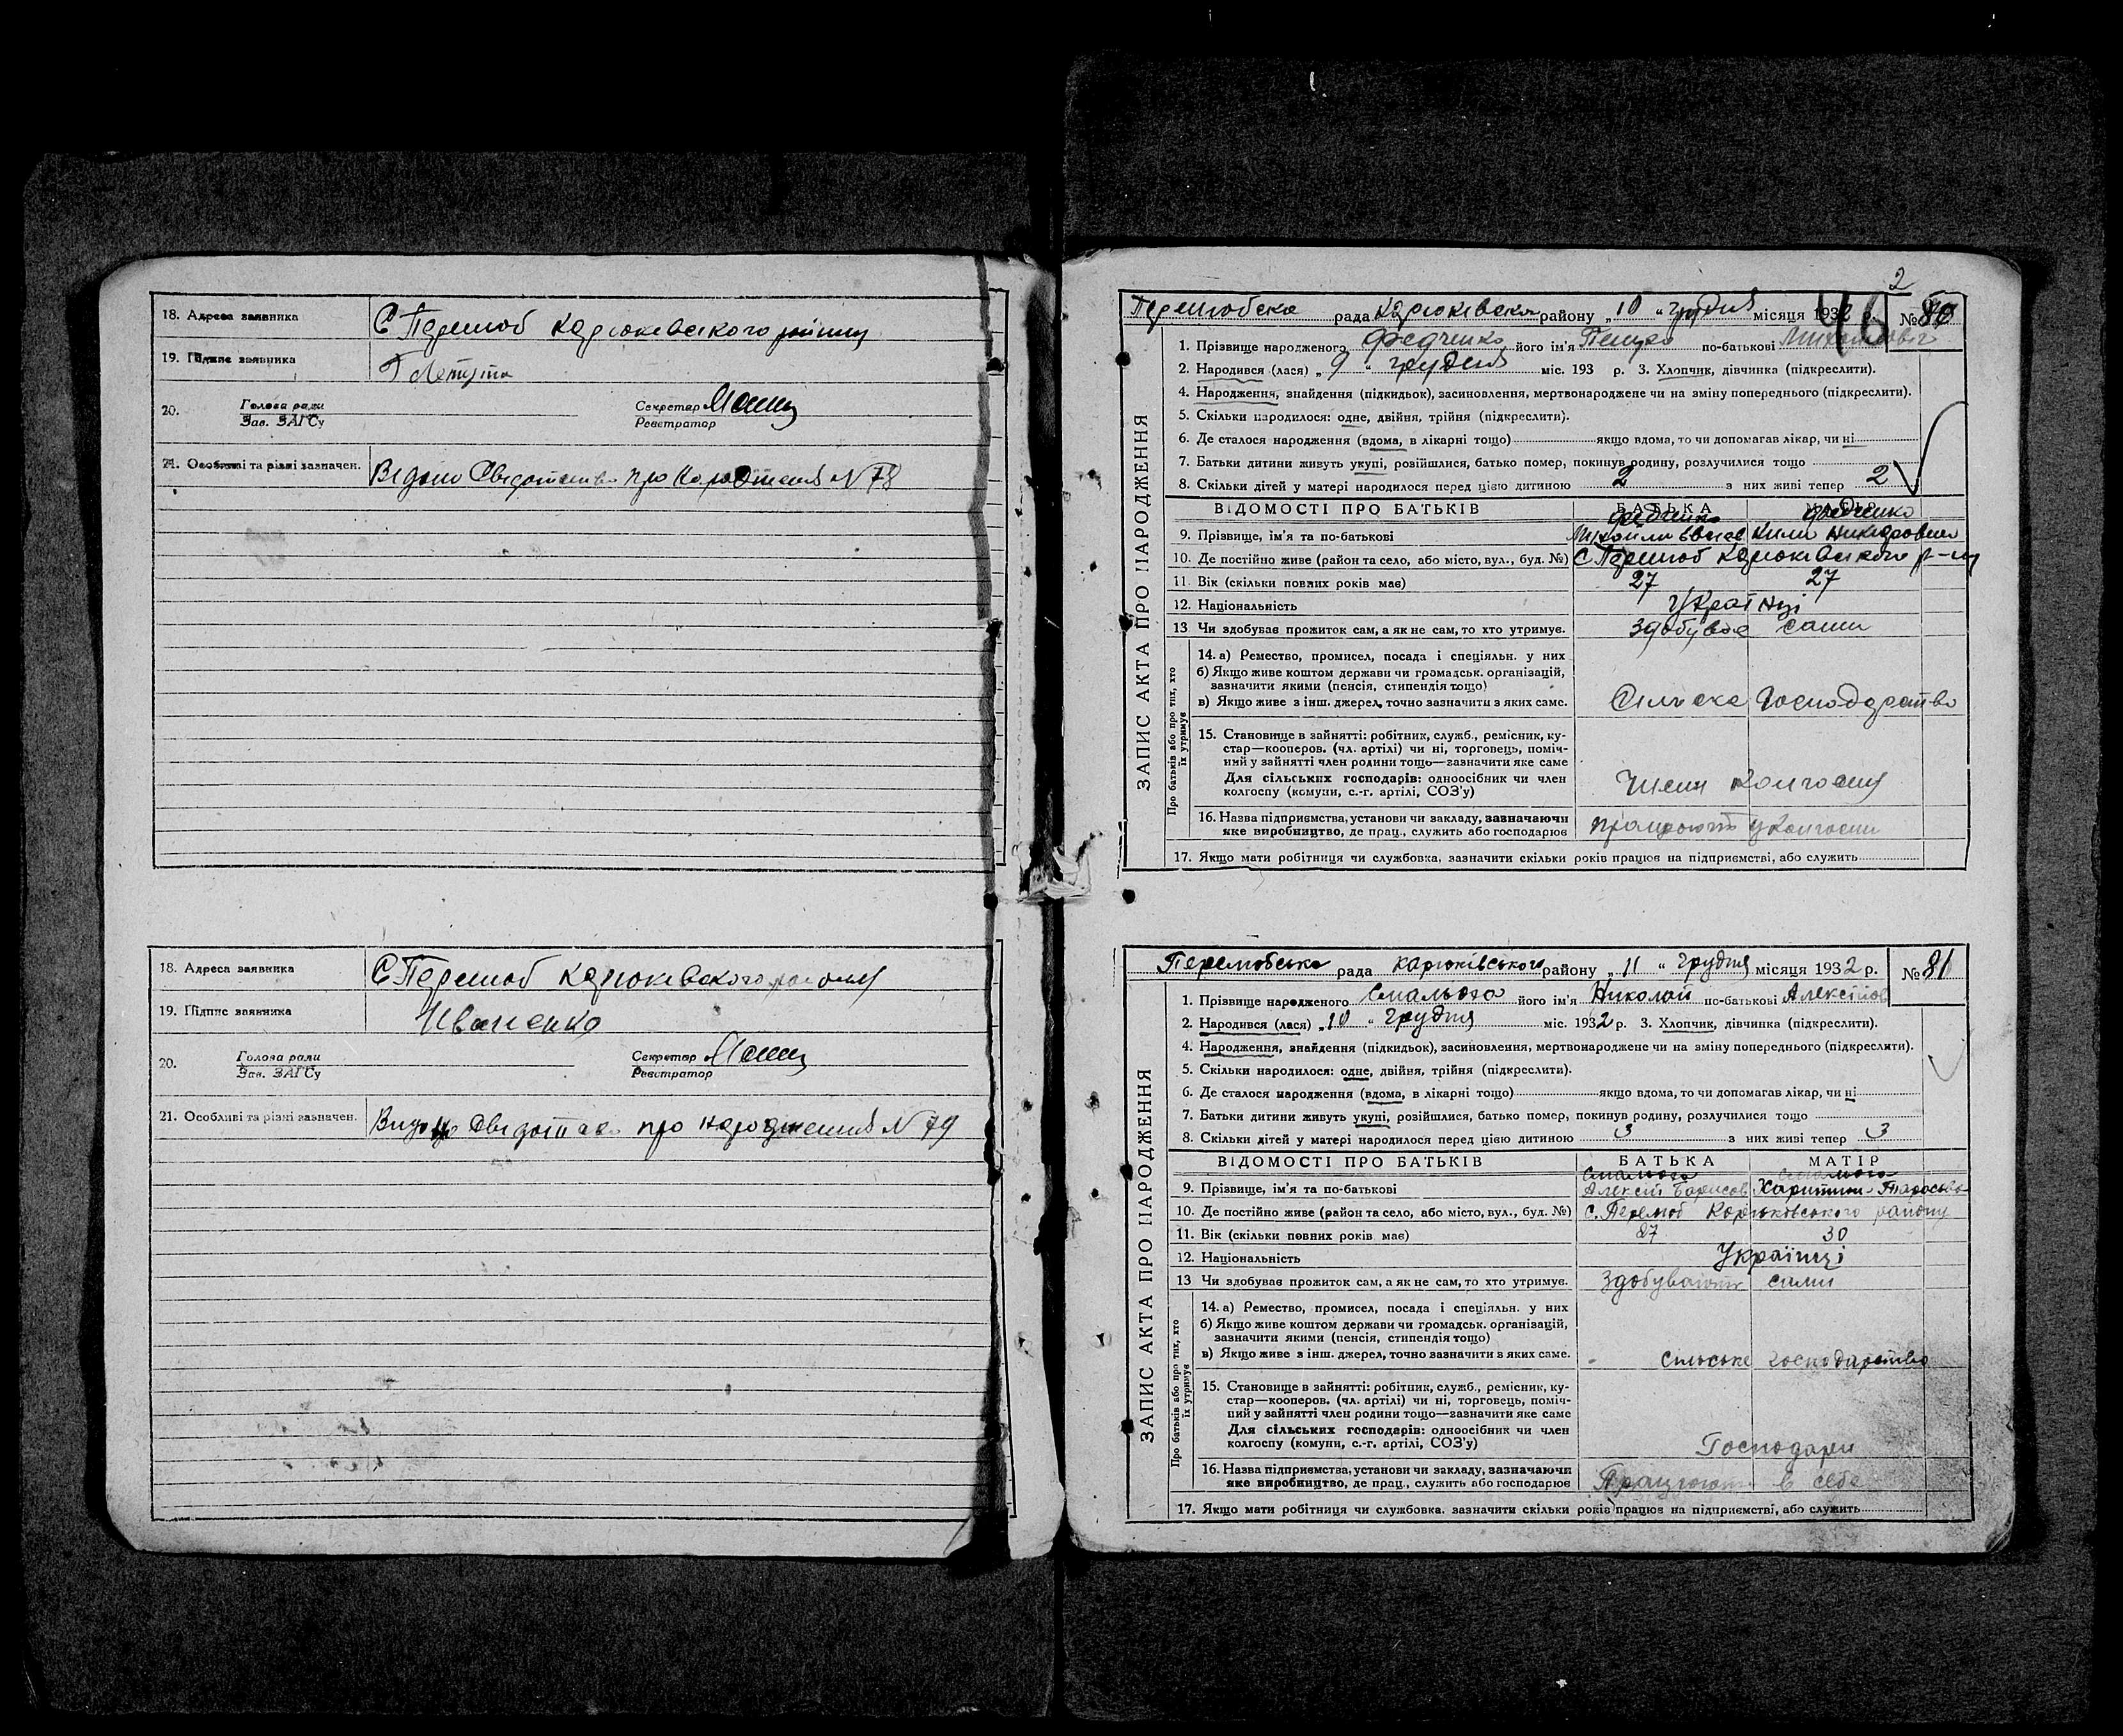 18. Адреса заявника С Перелюб Карюківського району
19. Підпис заявника Г Лепута
20. Голова ради
Зав. ЗАГСу
Секретар
Реєстратор
21. Особливі та різні зазначен. Відано Свідотство про Народження N 78
18. Адреса заявника С Перелюб Карюківського району
19. Підпис заявника Иваненко
20. Голова ради
Зав. ЗАГСу
Секретар
Реєстратор
21. Особливі та різні зазначен. про народження N 79
2
46
Перелюбська рада Карюківська району „10 “ грудня місяця 1932 р. № 80
ЗАПИС АКТА ПРО НАРОДЖЕННЯ
1. Прізвище народженого Федченко його ім'я Петро по-батькові Михайлович
2. Народився (лася) „ 9 “ грудня міс. 193 р. 3. Хлопчик, дівчинка (підкреслити).
4. Народження, знайдення (підкидьок), засиновлення, мертвонароджене чи на зміну попереднього (підкреслити).
5. Скільки народилося: одне, двійня, трійня (підкреслити).
6. Де сталося народження (вдома, в лікарні тощо) якщо вдома, то чи допомагав лікар, чи ні
7. Батьки дитини живуть укупі, розійшлися, батько помер, покинув родину, розлучилися тощо
8. Скільки дітей у матері народилося перед цією дитиною 2 з них живі тепер 2
ВІДОМОСТІ ПРО БАТЬКІВ БАТЬКА МАТІР
Федченко Федченко
9. Прізвище, ім'я та по-батькові
10. Де постійно живе (район та село, або місто, вул., буд. №) С Перелюб Карюківського р-ну
11. Вік (скільки повних років має) 27 27
12. Національність Українці
13 Чи здобував прожиток сам, а як не сам, то хто утримує. здобував сами
Про батьків або про тих, хто
їх утримує
14. а) Ремество, промисел, посада і спеціяльн. у них
б) Якщо живе коштом держави чи громадськ. організацій,
зазначити якими (пенсія, стипендія тощо)
в) Якщо живе з інш. джерел, точно зазначити з яких саме. Сільске Господарство
15. Становище в зайнятті: робітник, служб., ремісник, ку-
стар—кооперов. (чл. артілі) чи ні, торговець, поміч-
ний у зайнятті член родини тощо—зазначити яке саме
Для сільських господарів: одноосібник чи член
колгоспу (комуни, с.-г. артілі, СОЗ'у) Члени колгоспу
16. Назва підприємства, установи чи закладу, зазначаючи
яке виробництво, де прац., служить або господарює працюють у колгоспи
17. Якщо мати робітниця чи службовка, зазначити скільки років працює на підприємстві, або служить
Перелюбська рада Карюківського району „ 11 “ грудня місяця 1932 р. № 81
ЗАПИС АКТА ПРО НАРОДЖЕННЯ
1. Прізвище народженого його ім'я Николай по-батькові Алексійов
2. Народився (лася) „10 “ грудня міс. 1932 р. 3. Хлопчик, дівчинка (підкреслити).
4. Народження, знайдення (підкидьок), засиновлення, мертвонароджене чи на зміну попереднього (підкреслити).
5. Скільки народилося: одне, двійня, трійня (підкреслити).
6. Де сталося народження (вдома, в лікарні тощо) якщо вдома, то чи допомагав лікар, чи ні
7. Батьки дитини живуть укупі, розійшлися, батько помер, покинув родину, розлучилися тощо
8. Скільки дітей у матері народилося перед цією дитиною 3 з них живі тепер 3
ВІДОМОСТІ ПРО БАТЬКІВ БАТЬКА МАТІР
9. Прізвище, ім'я та по-батькові Алексій Барисов Харитина Тарасовна
10. Де постійно живе (район та село, або місто, вул., буд. №) с. Перелюб Карюковського району
11. Вік (скільки повних років має) 27 30
12. Національність Українці
13 Чи здобував прожиток сам, а як не сам, то хто утримує. Здобувають сами
Про батьків або про тих, хто
їх утримує
14. а) Ремество, промисел, посада і спеціяльн. у них
б) Якщо живе коштом держави чи громадськ. організацій,
зазначити якими (пенсія, стипендія тощо)
в) Якщо живе з інш. джерел, точно зазначити з яких саме. сильське господарство
15. Становище в зайнятті: робітник, служб., ремісник, ку-
стар—кооперов. (чл. артілі) чи ні, торговець, поміч-
ний у зайнятті член родини тощо—зазначити яке саме
Для сільських господарів: одноосібник чи член
колгоспу (комуни, с.-г. артілі, СОЗ'у) Господари
16. Назва підприємства, установи чи закладу, зазначаючи
яке виробництво, де прац., служить або господарює Працюют в себе
17. Якщо мати робітниця чи службовка, зазначити скільки років працює на підприємстві, або служить